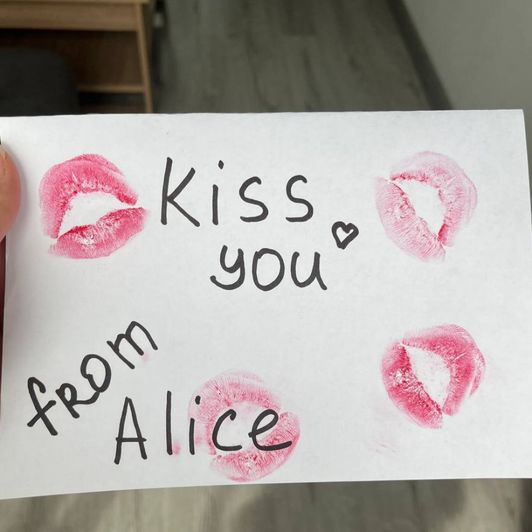 Kiss
you
from
Alice